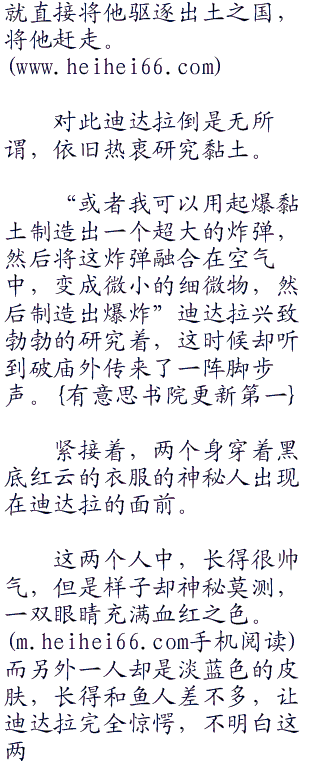 就直接将他驱逐出土之国，
将他赶走。
(www.heihei66.com)
对此迪达拉倒是无所
谓，依旧热衷研究黏土。
“或者我可以用起爆黏
土制造出一个超大的炸弹，
然后将这炸弹融合在空气
中，变成微小的细微物，然
后制造出爆炸”迪达拉兴致
勃勃的研究着，这时候却听
到破庙外传来了一阵脚步
声。{有意思书院更新第一}
紧接着，两个身穿着黑
底红云的衣服的神秘人出现
在迪达拉的面前。
这两个人中，长得很帅
气，但是样子却神秘莫测，
一双眼睛充满血红之色。
(m.heihei66.com手机阅读)
而另外一人却是淡蓝色的皮
肤，长得和鱼人差不多，让
迪达拉完全惊愕，不明白这
两